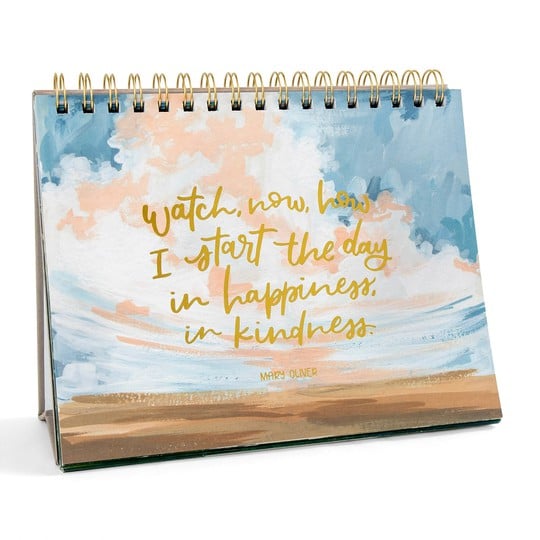 Watch, now, how
I start the day
in happiness,
in kindness.
MARY OLIVER